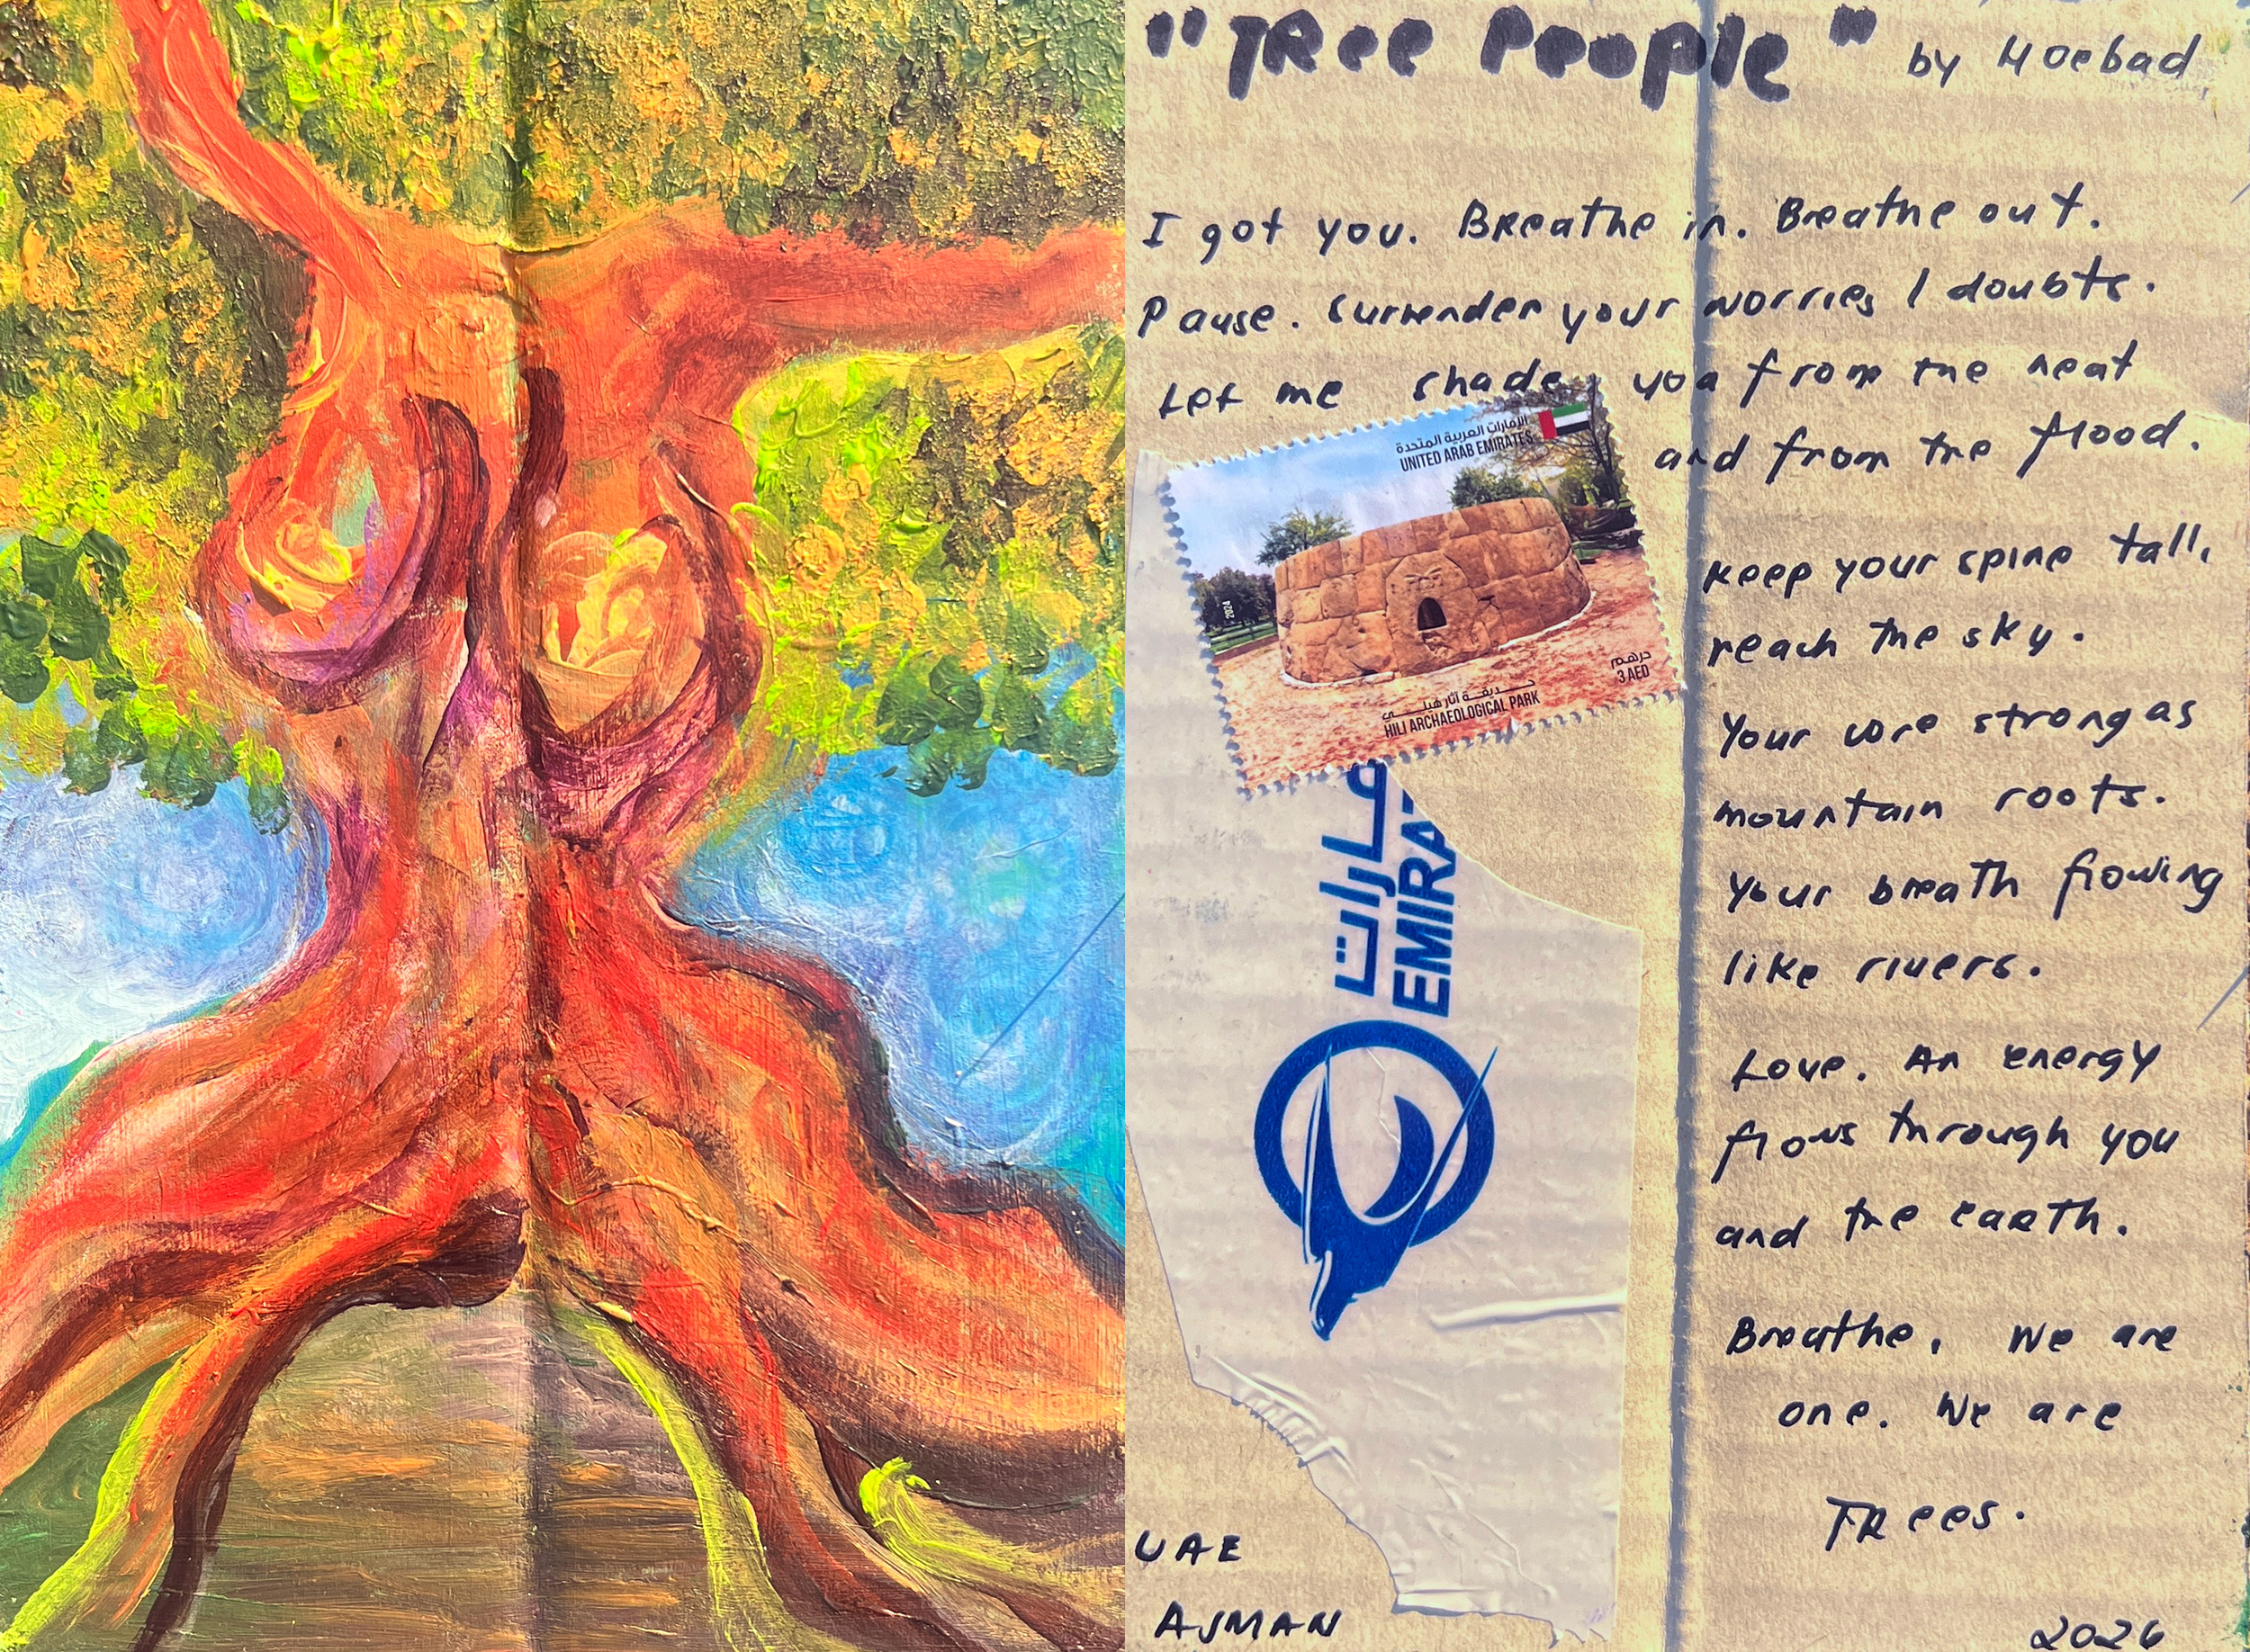 "TRee People" by Moebad
I got you. Breathe in. Breathe out.
Pause. Surrender your worries / doubts.
Let me shade you from the heat
and from the flood.
الإمارات العربية المتحدة
UNITED ARAB EMIRATES
2024
درهم
3 AED
حديقة آثار هيلي
HILI ARCHAEOLOGICAL PARK
Keep your spine tall,
reach the sky.
Your core strong as
mountain roots.
Your breath flowing
like rivers.
Love. An energy
flows through you
and the earth.
Breathe. We are
one. We are
TRees.
UAE
AJMAN
2026